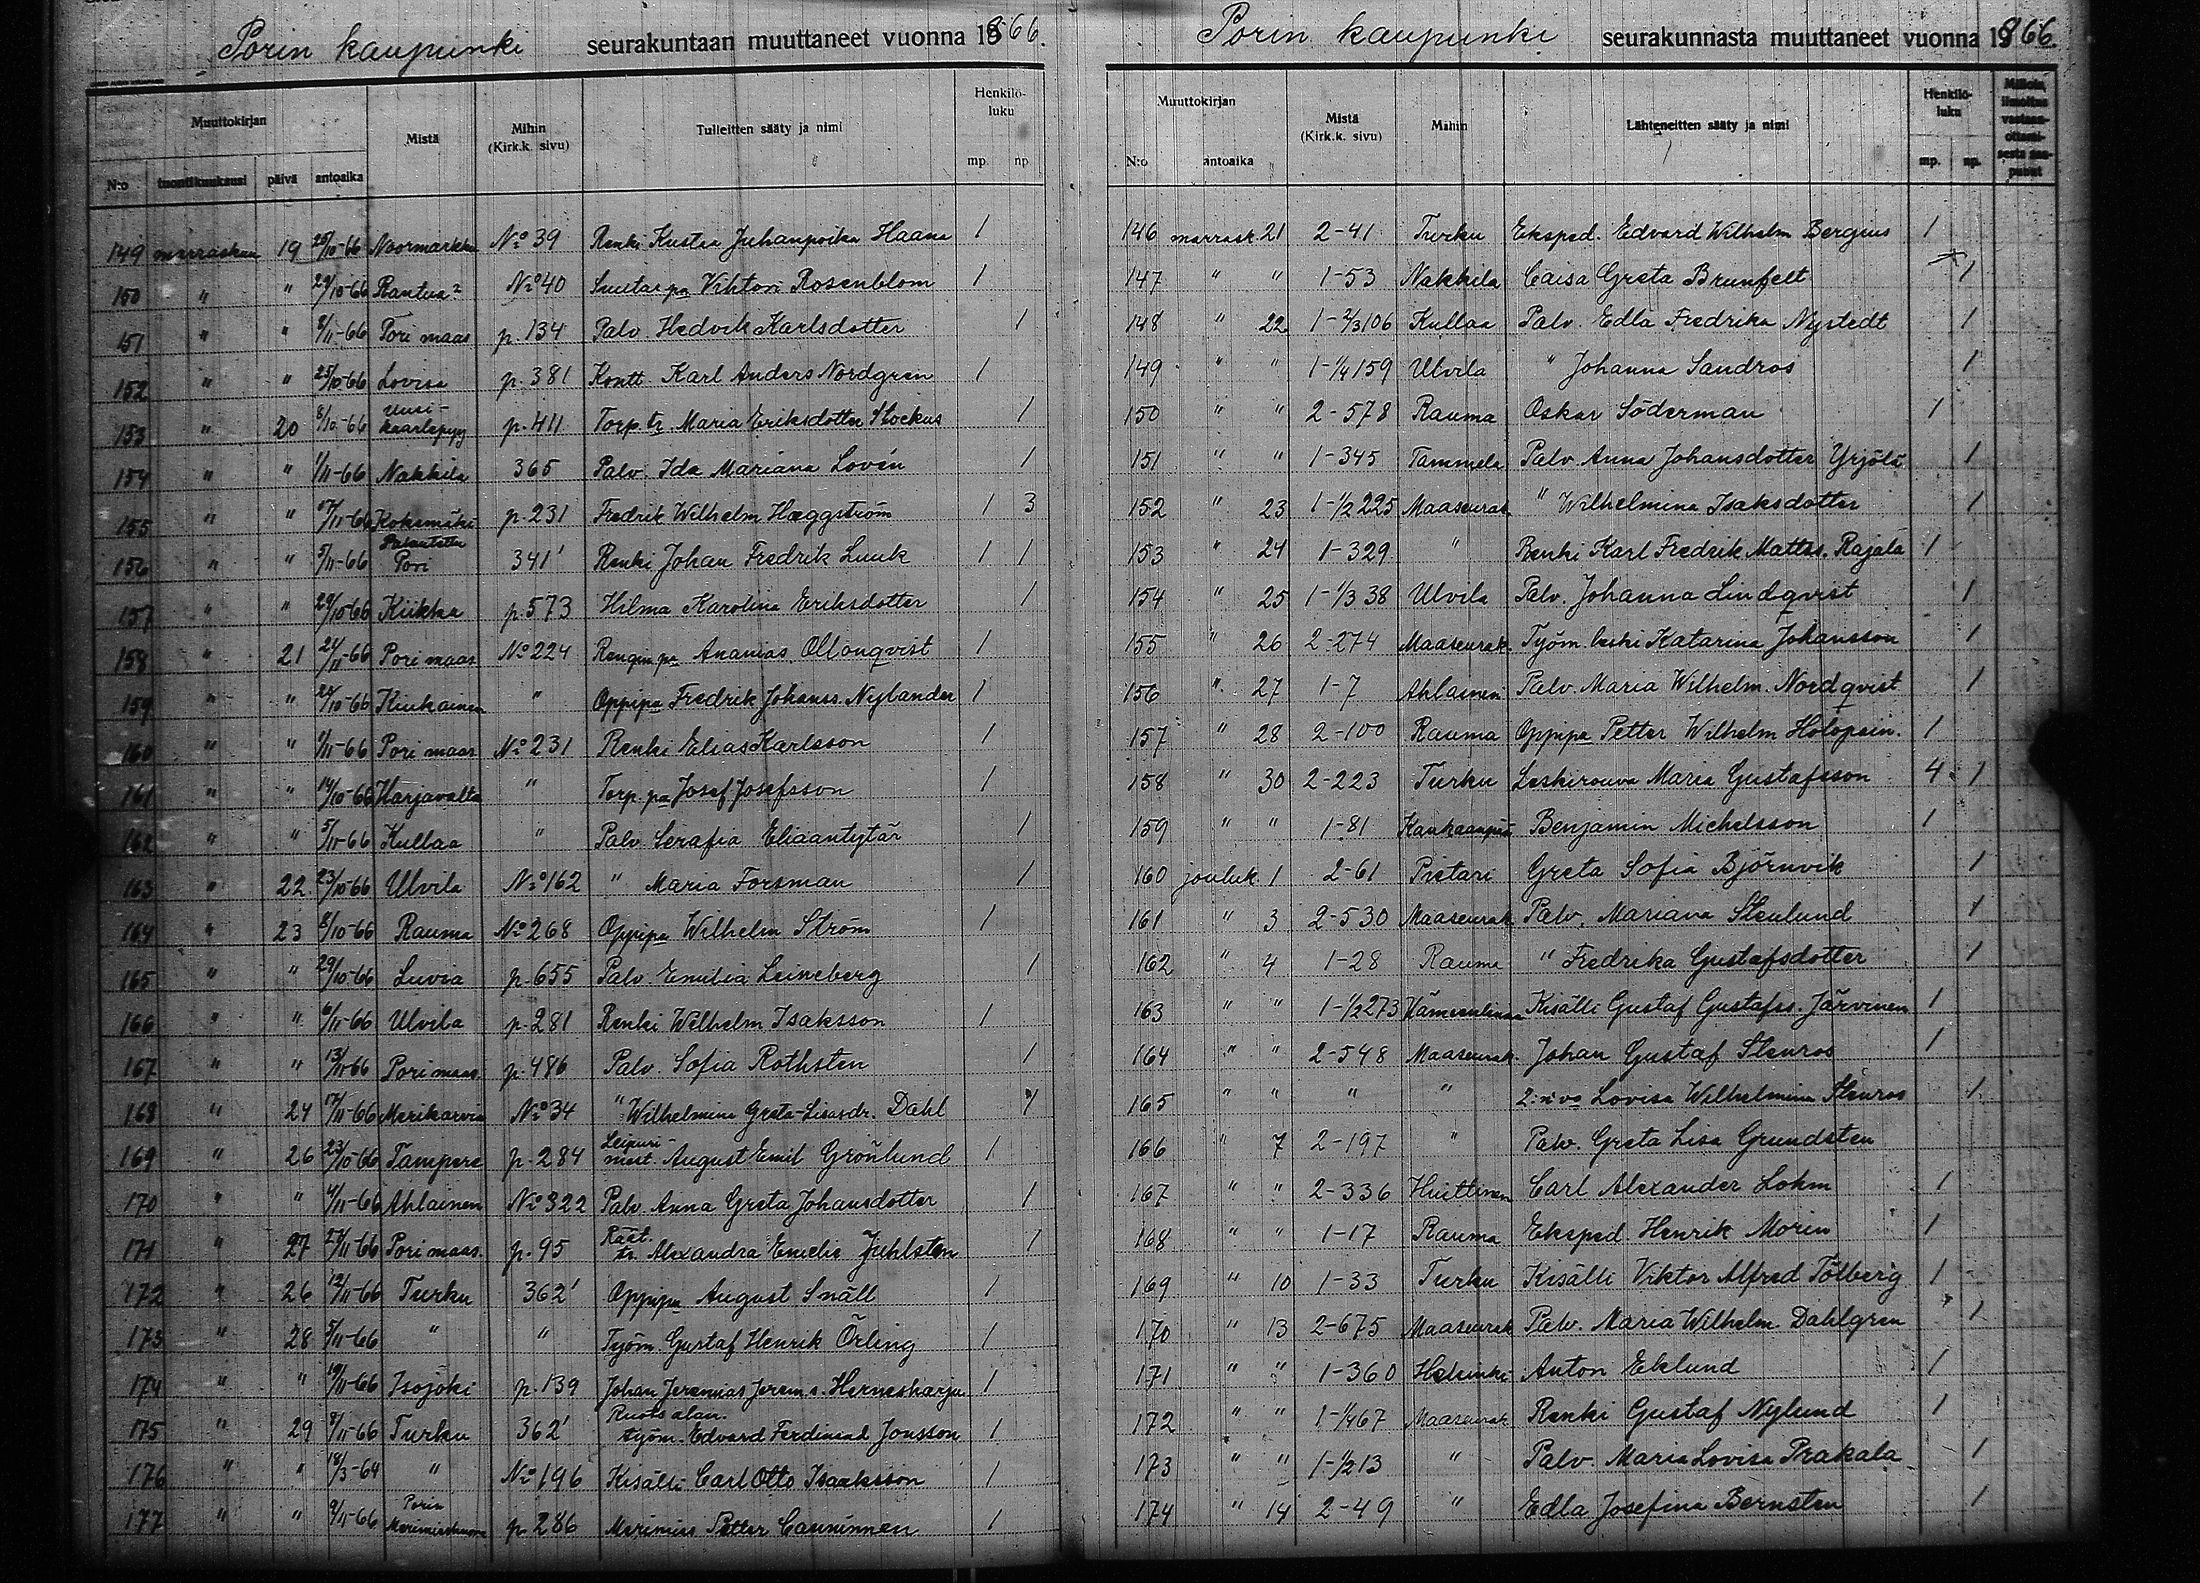 Porin kaupunki seurakuntaan muuttaneet vuonna 1866.
Muuttokirjan
Mistä
Mihin (Kirk.k. sivu)
Tulleitten sääty ja nimi
Henkilö-luku
N:o tuontikuukausi päivä antoaika mp. np
149 marraskuu 19 25/10-66 Noormarkku No 39 Renki Kustaa Juhanpoika Haana 1
150 " " 29/10-66 No 40 Vihtori Rosenblom 1
151 " " 8/11-66 Pori maas p. 134 Palv. Hedvik Karlsdotter 1
152 " " 25/10-66 Lovisa p. 381 Kontt. Karl Anders Nordgren 1
153 " 20 8/10-66 Uusi-kaarlepyy p. 411 Torp. tr. Maria Eriksdotter Stockus 1
154 " " 1/11-66 Nakkila 365 Palv. Ida Mariana Lovén 1
155 " " 17/11-66 Kokemäki p. 231 Fredrik Wilhelm Hæggström 1 3
156 " " 5/11-66 Palautettu Pori 341' Renki Johan Fredrik Luuk 1 1
157 " " 29/10-66 Kiikka p. 573 Hilma Karolina Eriksdotter 1
158 " 21 21/11-66 Pori maas No 224 Rengin pa Ananias Ollonqvist 1
159 " " 22/10-66 Kiukainen " Oppipa Fredrik Johanss. Nylander 1
160 " " 2/11-66 Pori maas No 231 Renki Elias Karlsson 1
161 " " 14/10-66 Harjavalta " Torp. pa Josef Josefsson 1
162 " " 5/11-66 Kullaa " Palv Serafia Eliaantytär 1
163 " 22 23/10-66 Ulvila No 162 " Maria Forsman 1
164 " 23 8/10-66 Rauma No 268 Oppipa Wilhelm Ström 1
165 " " 29/10-66 Luvia p. 655 Palv. Emilia Leineberg 1
166 " " 6/11-66 Ulvila p. 281 Renki Wilhelm Isaksson 1
167 " " 13/11-66 Pori maas. p. 486 Palv. Sofia Rothsten 1
168 " 24 17/11-66 Merikarvia No 34 " Wilhelmina Greta-Lisasdr. Dahl 1
169 " 26 23/10-66 Tampere p. 284 Leipuri-mest. August Emil Grönlund 1
170 " " 4/11-66 Ahlainen No 322 Palv. Anna Greta Johansdotter 1
171 " 27 27/11-66 Pori maas. p. 95 Räät. tr. Alexandra Emelie Juhlsten 1
172 " 26 12/11-66 Turku 362' Oppipa August Snäll 1
173 " 28 5/11-66 " " Työm. Gustaf Henrik Örling 1
174 " " 19/11-66 Isojoki p. 139 Johan Jeremias Jerem s. Hernesharju 1
175 " 29 8/11-66 Turku 362' Ruots alam. työm. Edvard Ferdinand Jonsson 1
176 " " 18/3-64 " No 196 Kisälli Carl Otto Isaaksson 1
177 " " 9/11-66 Porin Merimieshuone p. 286 Merimies Petter Cauninnen 1
Porin kaupunki seurakunnasta muuttaneet vuonna 1866.
Muuttokirjan
Mistä (Kirk.k. sivu)
Mihin
Lähteneitten sääty ja nimi
Henkilö-luku
N:o antoaika mp. np.
146 marrask. 21 2-41 Turku Eksped. Edvard Wilhelm Bergius 1
147 " " 1-53 Nakkila Caisa Greta Brunfelt 1
148 " 22 1-2/3 106 Kullaa Palv. Edla Fredrika Nystedt 1
149 " " 1-1/4 159 Ulvila " Johanna Sandros 1
150 " " 2-578 Rauma Oskar Söderman 1
151 " " 1-345 Tammela Palv. Anna Johansdotter Yrjölä 1
152 " 23 1-1/2 225 Maaseurak " Wilhelmina Isaksdotter 1
153 " 24 1-329 " Renki Karl Fredrik Mattss. Rajala 1
154 " 25 1-1/3 38 Ulvila Palv. Johanna Lindqvist 1
155 " 26 2-274 Maaseurak. Työm. leski Katarina Johansson 1
156 " 27 1-7 Ahlainen Palv. Maria Wilhelm. Nordqvist 1
157 " 28 2-100 Rauma Oppipa Petter Wilhelm Holopain. 1
158 " 30 2-223 Turku Leskirouva Maria Gustafsson 4 1
159 " " 1-81 Kankaanpää Benjamin Michelsson 1
160 jouluk 1 2-61 Pietari Greta Sofia Björnvik 1
161 " 3 2-530 Maaseurak Palv. Mariana Stenlund 1
162 " 4 1-28 Rauma " Fredrika Gustafsdotter 1
163 " " 1-1/2 273 Hämeenlinna Kisälli Gustaf Gustafss. Järvinen 1
164 " " 2-548 Maaseurak. Johan Gustaf Stenros 1
165 " " " " Lovisa Wilhelmina Stenros 1
166 " 7 2-197 " Palv. Greta Lisa Grundsten
167 " " 2-336 Huittinen Carl Alexander Lohm 1
168 " " 1-17 Rauma Eksped Henrik Morin 1
169 " 10 1-33 Turku Kisälli Viktor Alfred Tölberg 1
170 " 13 2-675 Maaseurak Palv. Maria Wilhelm. Dahlgren 1
171 " " 1-360 Helsinki Anton Eklund 1
172 " " 1-1/4 67 Maaseurak Renki Gustaf Nylund 1
173 " " 1-1/2 13 " Palv. Maria Lovisa Prakala 1
174 " 14 2-49 " Edla Josefina Bernsten 1